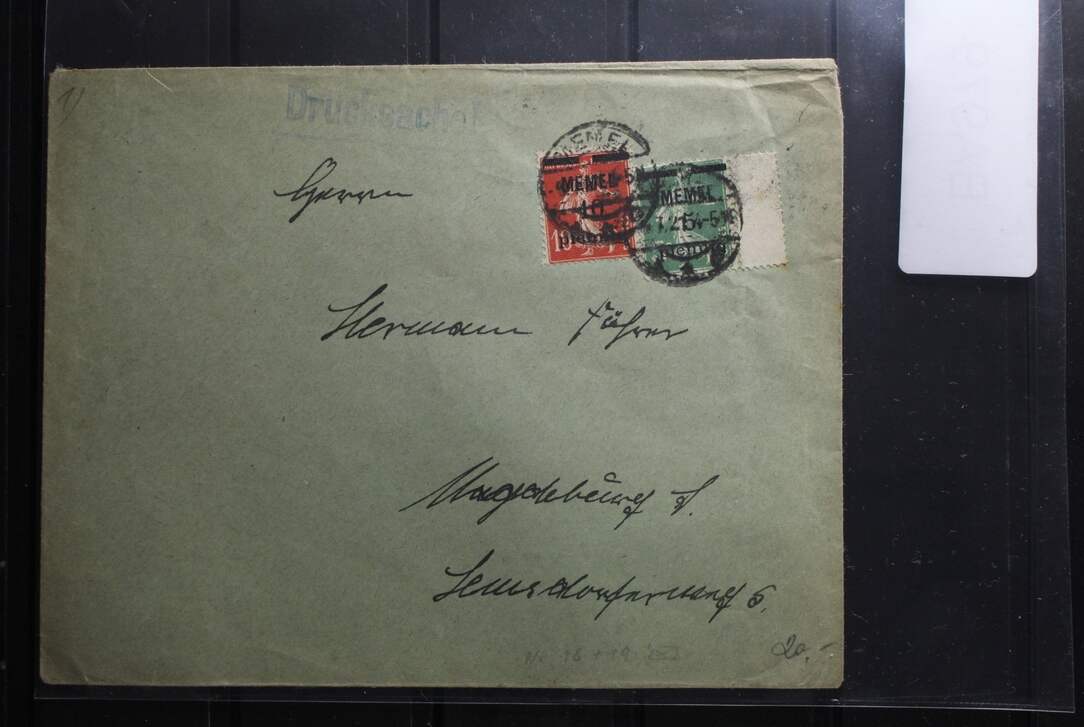 1)
Drucksache!
MEMEL
MEMEL
10
10
MEMEL
1.2.21 5-4-5N
Herrn
Hermann Führer
Magdeburg S.
Lemsdorferweg 5.
No 18 + 19
20.-